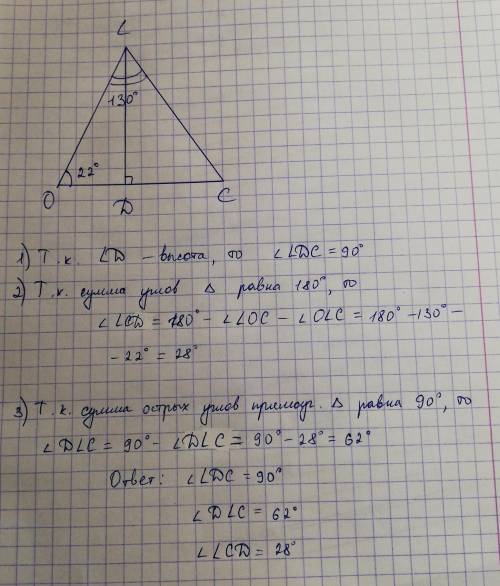 L
130°
22°
O
D
C
1) Т.к. LD – высота, то ∠LDC = 90°
2) Т.к. сумма углов Δ равна 180°, то
∠LCD = 180° – ∠LOC – ∠OLC = 180° – 130° –
– 22° = 28°
3) Т.к. сумма острых углов прямоуг. Δ равна 90°, то
∠DLC = 90° – ∠DLC = 90° – 28° = 62°
Ответ: ∠LDC = 90°
∠DLC = 62°
∠LCD = 28°